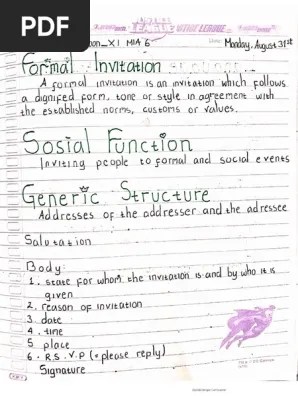 PDF
XI MIA 6
Date: Monday, August 31st
Formal Invitation
A formal invitation is an invitation which follows
a dignifed form, tone or style in agreement with
the established norms, customs or values.
Sosial Function
Inviting people to formal and social events
Generic Structure
Addresses of the addresser and the adressee
Salutation
Body:
1. state for whom the invitation is and by who it is
given
2. reason of invitation
3. date
4. time
5 place
6. R.S.V.P (=please reply)
Signature